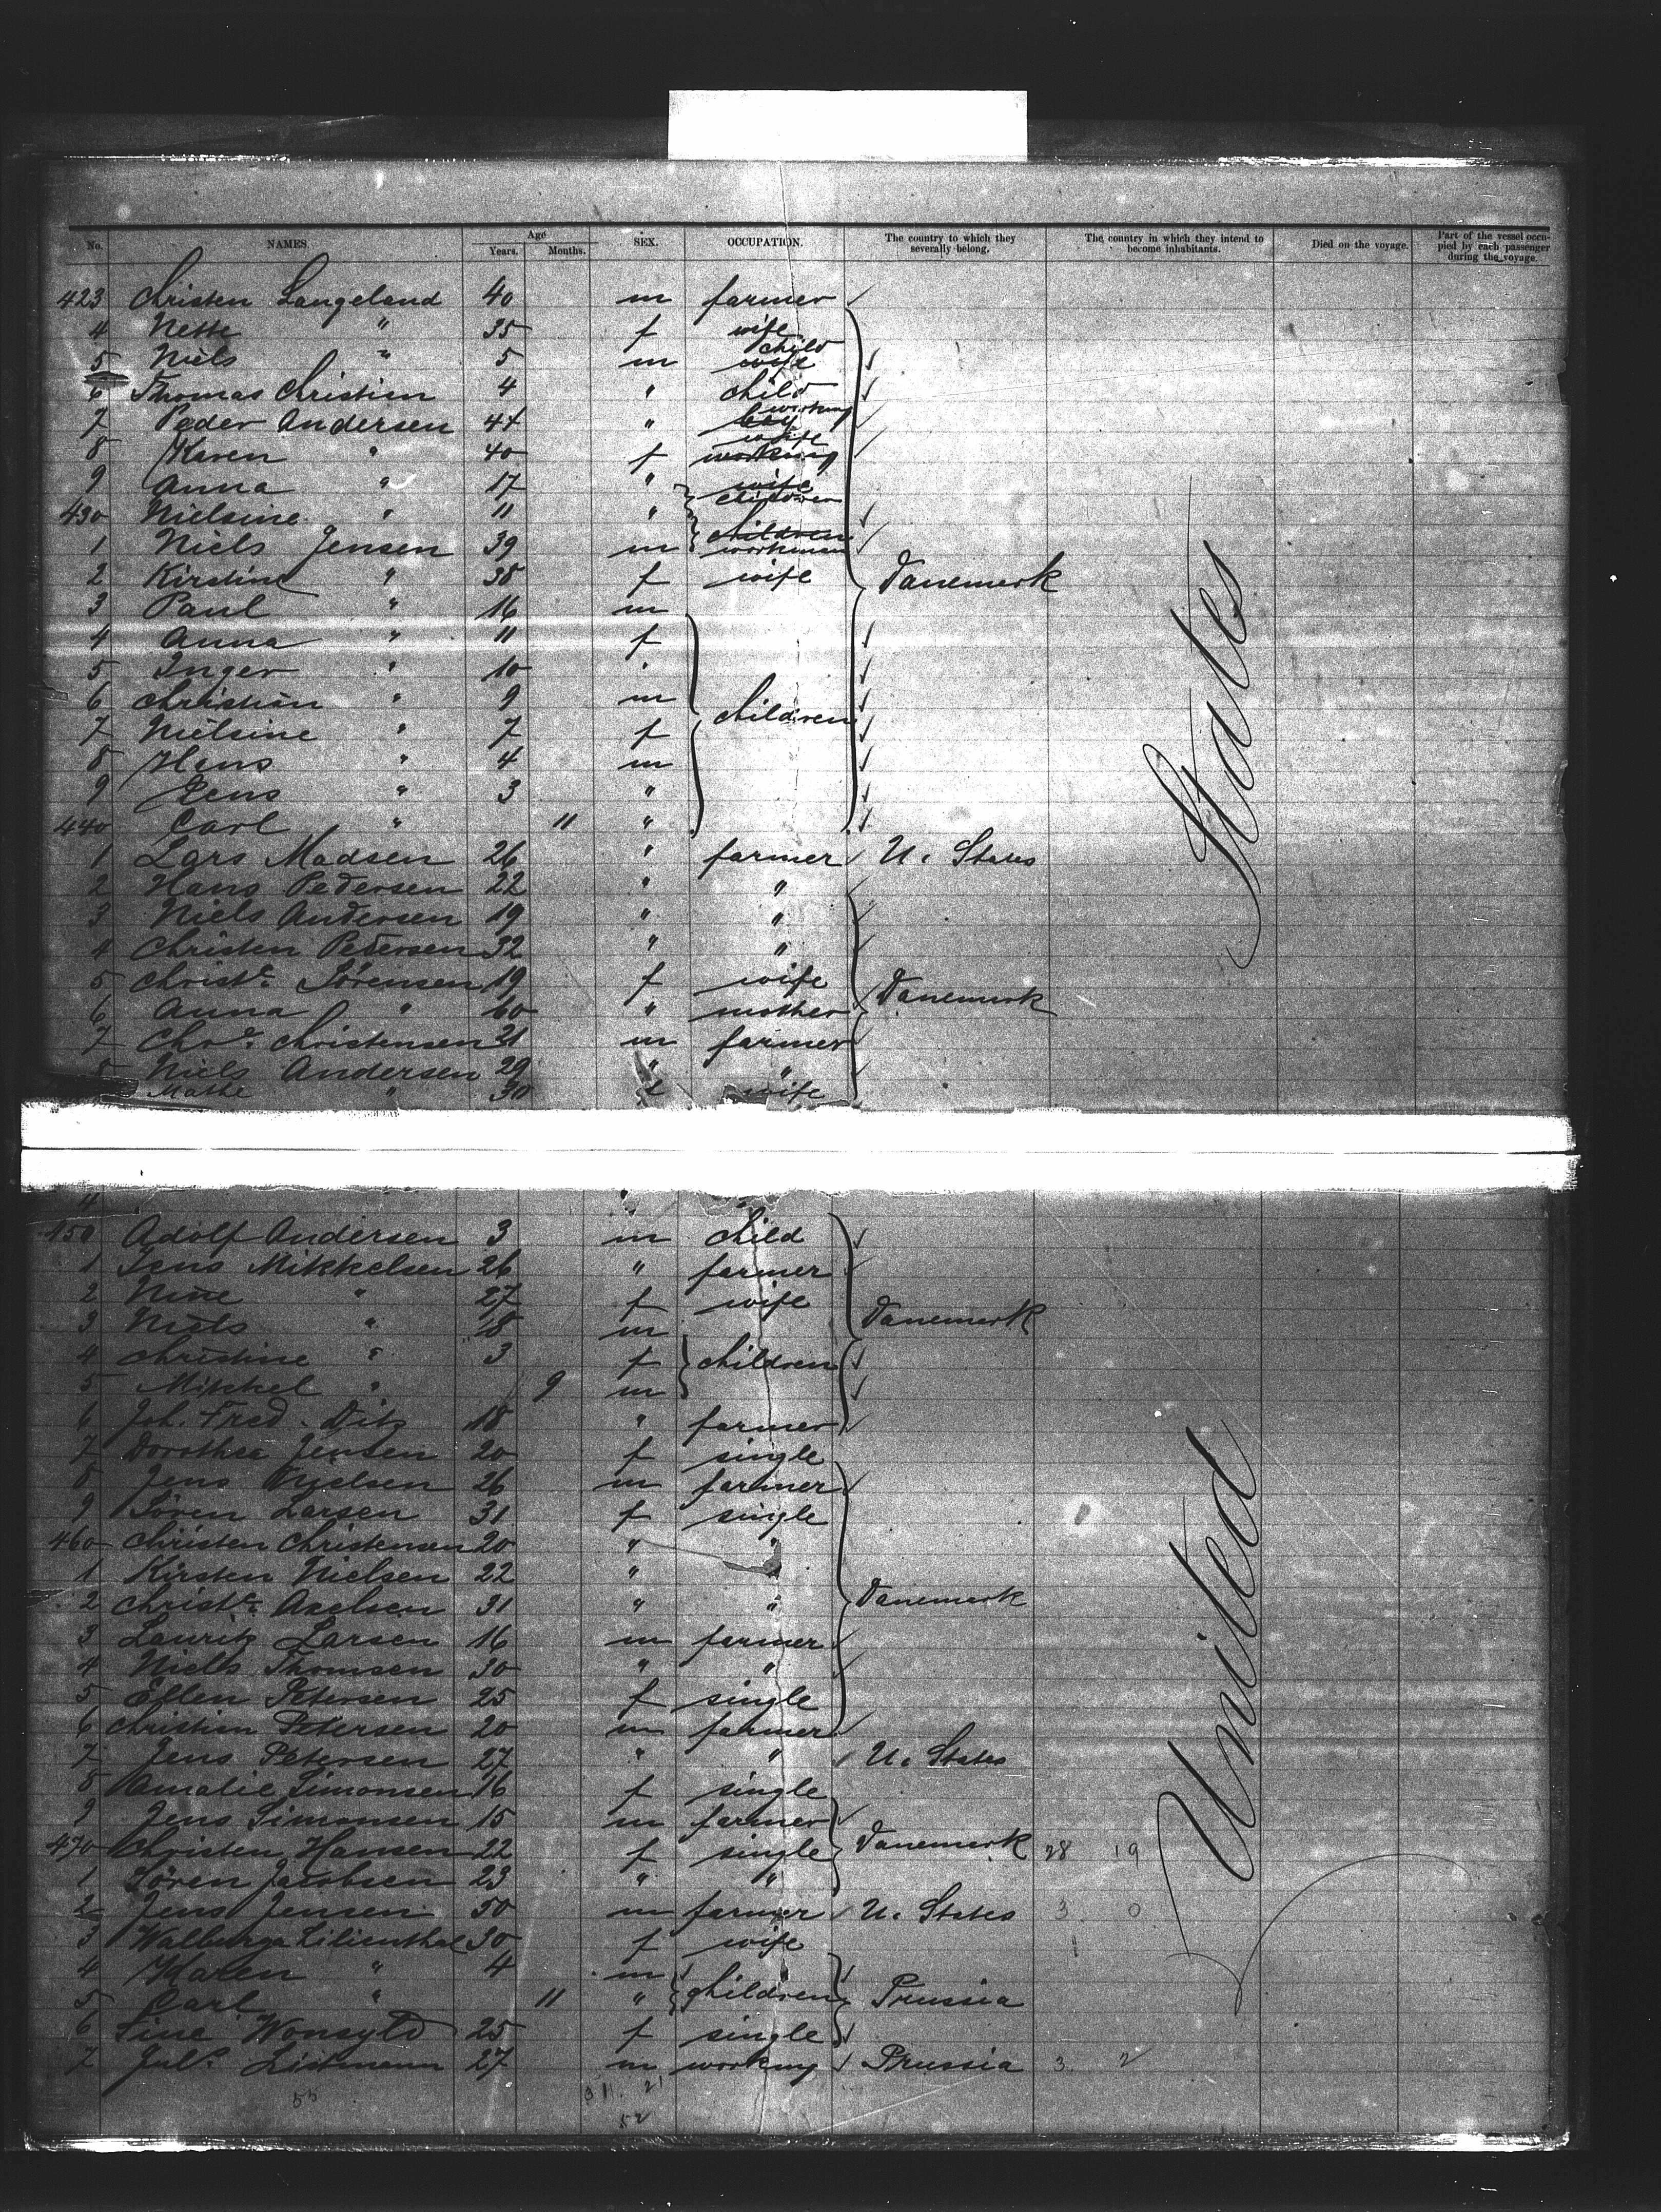 No. NAMES. Age Years. Months. SEX. OCCUPATION. The country to which they severally belong. The country in which they intend to become inhabitants. Died on the voyage. Part of the vessel occupied by each passenger during the voyage.
423 Christen Langeland 40 m farmer
4 Nette " 35 f wife
5 Niels " 5 m wife child
6 Thomas Christian 4 " child
7 Peder Andersen 44 " boy working
8 Karen " 40 f working wife
9 Anna " 17 " wife children
430 Nielsine " 11 " children
1 Niels Jensen 39 m workman
2 Kirstine " 38 f wife Danemark
3 Paul " 16 m
4 Anna " 11 f
5 Inger " 10 "
6 Christian " 9 m
7 Nielsine " 7 f children
8 Hans " 4 m
9 Jens " 3 "
440 Carl " 11 "
1 Lars Madsen 26 " farmer U. States
2 Hans Pedersen 22 " "
3 Niels Andersen 19 " "
4 Christen Petersen 32 " "
5 Christe. Sörensen 19 f wife Danemark
6 Anna " 60 " mother
7 Chr. Christensen 21 m farmer
8 Niels Andersen 29 " "
Mathe " 30 f wife
States
450 Adolf Andersen 3 m child
1 Jens Mikkelsen 26 " farmer
2 Nine " 27 f wife
3 Niels " 18 m Danemark
4 Christine " 3 f children
5 Mikkel " 9 m
6 Joh. Fred. Ditz 18 " farmer
7 Dorothea Jensen 20 f single
8 Jens 26 m farmer
9 Sören Larsen 31 f single
460 Christen Christensen 20 " "
1 Kirsten Nielsen 22 " "
2 Christe. Axelsen 31 " " Danemark
3 Lauritz Larsen 16 m farmer
4 Niels Thomsen 30 " "
5 Ellen Petersen 25 f single
6 Christian Petersen 20 m farmer
7 Jens Petersen 27 " " U. States
8 Amalie Simonsen 16 f single
9 Jens Simonsen 15 m farmer
470 Christen Hansen 22 f single Danemark 28 19
1 Sören Jacobsen 23 " "
2 Jens Jensen 50 m farmer U. States 3 0
3 Walburga Lilienthal 30 f wife 1
4 Maren " 4 m
5 Carl " 11 " children Prussia
6 Sine Wonsyld 25 f single
7 Juls. Listmann 27 m working Prussia 3 2
United
55 311. 21
52